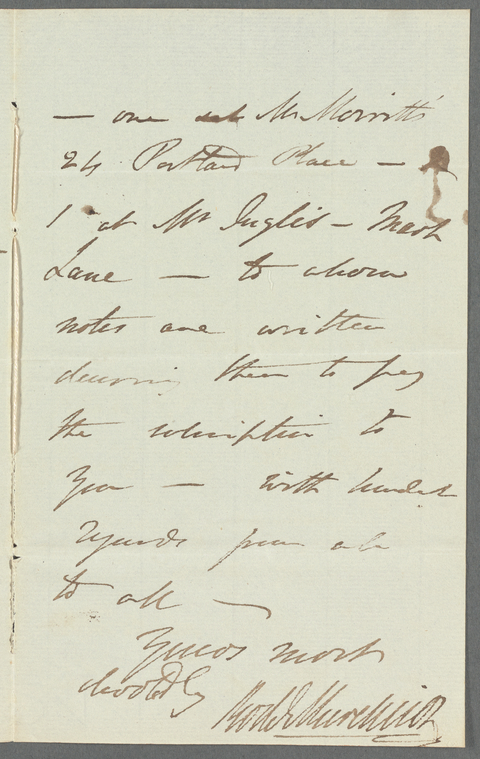 — one at Mr Morritts
24 Portland Place —
1 at Mr Inglis — Mark
Lane — to whom
notes are written
desiring them to pay
the subscription to
you — With kindest
regards from all
to all —
Yours most
devotedly
Rod I Murchison